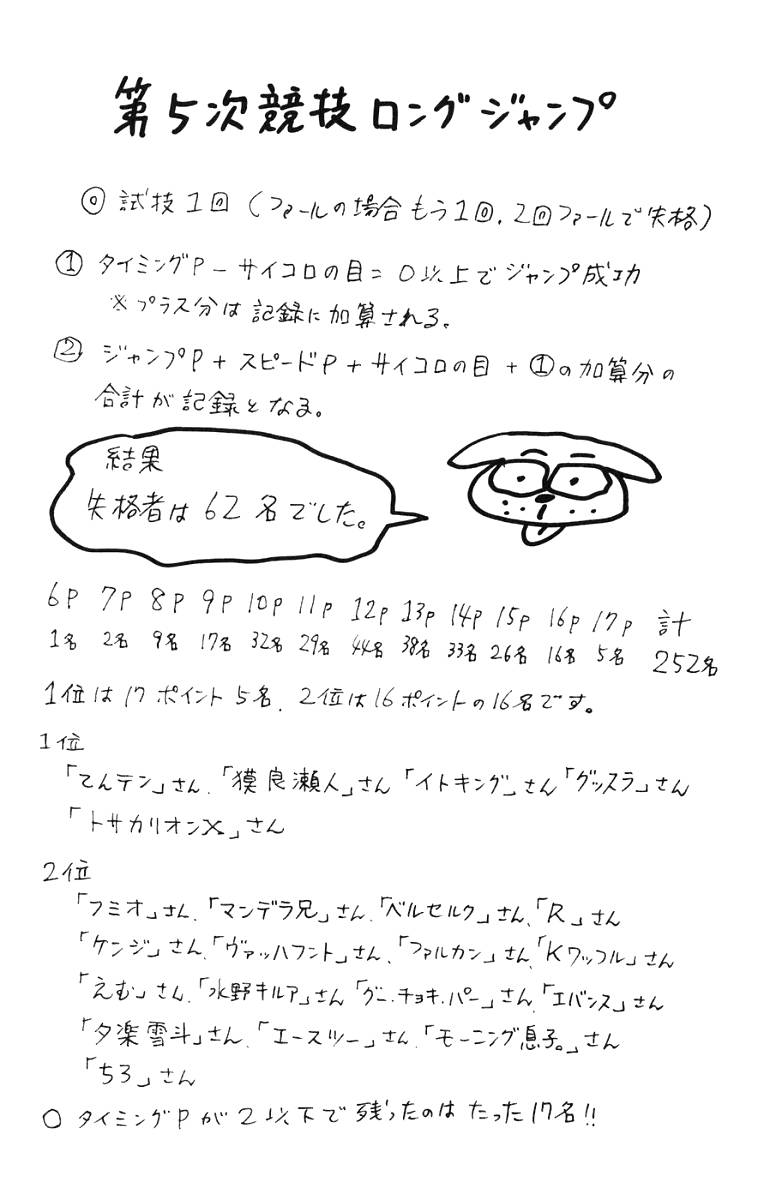 第5次競技ロングジャンプ
◎ 試技1回(ファールの場合もう1回、2回ファールで失格)
① タイミングP－サイコロの目＝0以上でジャンプ成功
※プラス分は記録に加算される。
② ジャンプP＋スピードP＋サイコロの目＋①の加算分の
合計が記録となる。
結果
失格者は62名でした。
6P 7P 8P 9P 10P 11P 12P 13P 14P 15P 16P 17P 計
1名 2名 9名 17名 32名 29名 44名 38名 33名 26名 16名 5名 252名
1位は17ポイント5名、2位は16ポイントの16名です。
1位
「てんテン」さん、「獏良瀬人」さん「イトキング」さん「グッスラ」さん
「トサカリオンX」さん
2位
「フミオ」さん、「マンデラ兄」さん、「ベルセルク」さん、「R」さん
「ケンジ」さん、「ヴァッハフント」さん、「ファルカン」さん、「Kワッフル」さん
「えむ」さん、「水野キルア」さん「グー・チョキ・パー」さん、「エバンス」さん
「夕楽雪斗」さん、「エースツー」さん、「モーニング息子。」さん
「ちろ」さん
○ タイミングPが2以下で残ったのはたった17名!!